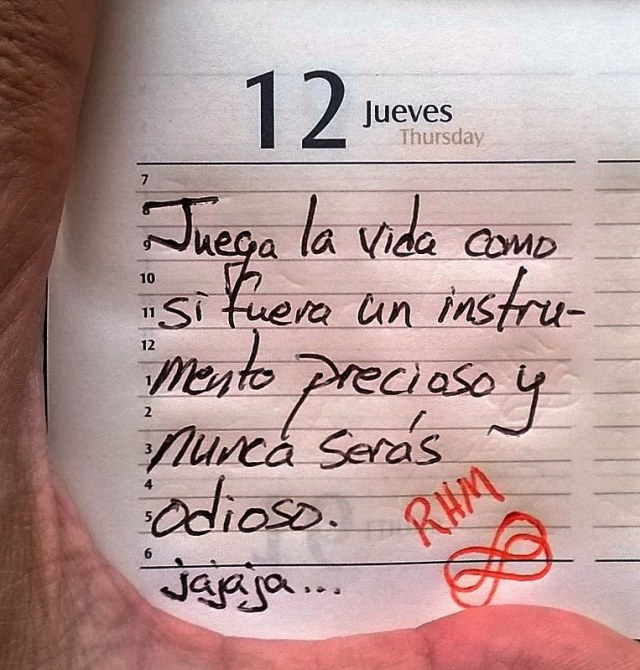 12 Jueves
Thursday
7
8 Juega la vida como
9
10
11 si fuera un instru-
12
1 mento precioso y
2
3 nunca serás
4
5 odioso. RHM
6
jajaja...